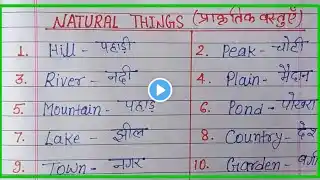 NATURAL THINGS (प्राकृतिक वस्तुएँ)
1. Hill - पहाड़ी 2. Peak - चोटी
3. River - नदी 4. Plain - मैदान
5. Mountain - पहाड़ 6. Pond - पोखरा
7. Lake - झील 8. Country - देश
9. Town - नगर 10. Garden -